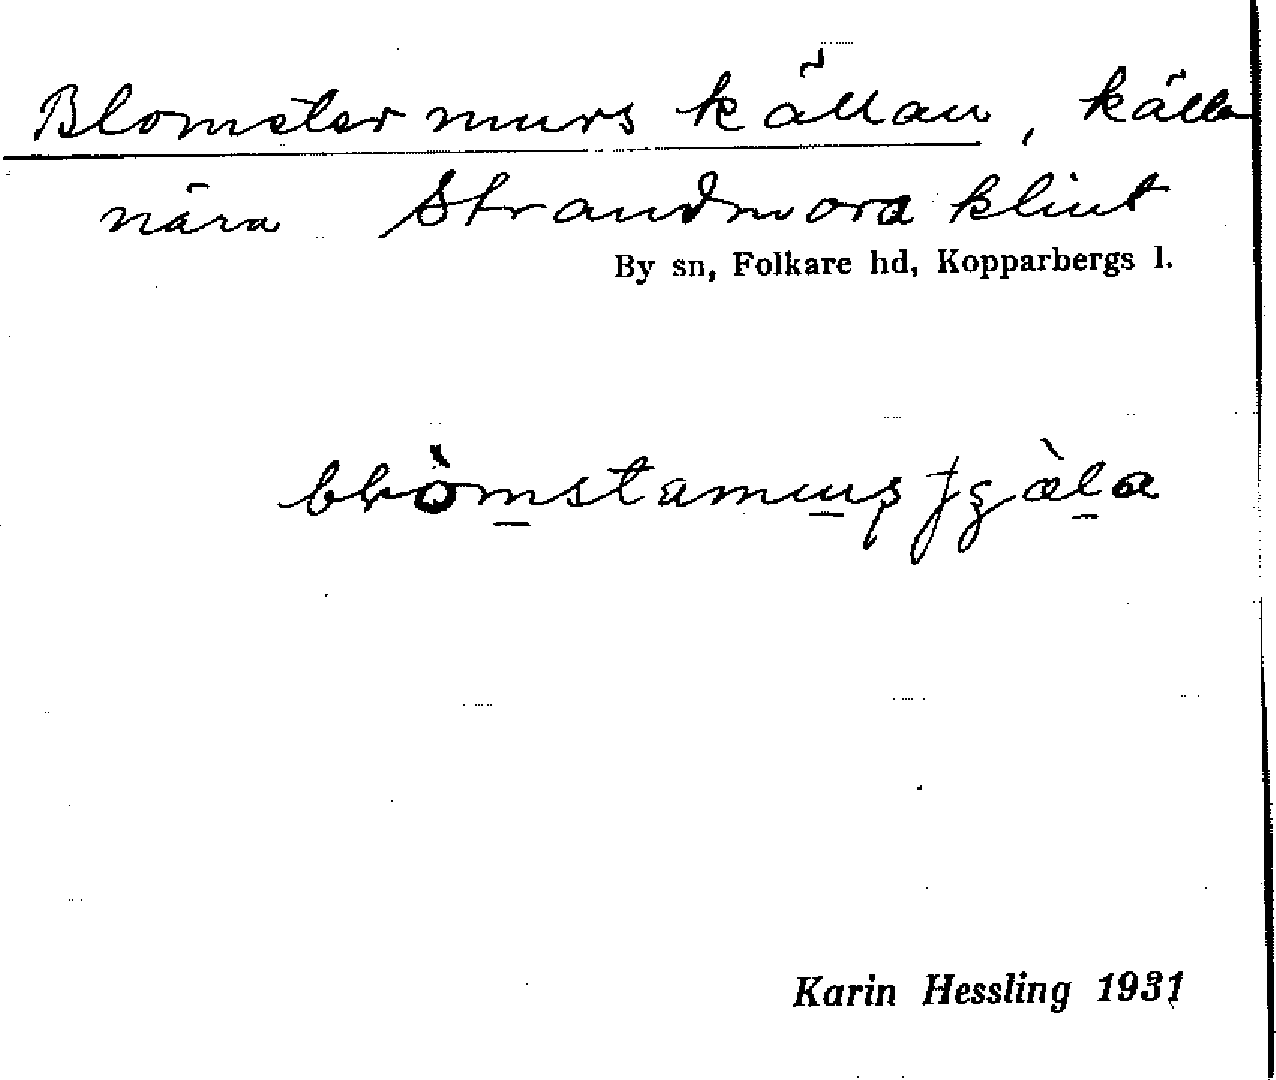 Blomstermurskällan, källa
nära Strandmora klint
By sn, Folkare hd, Kopparbergs l.
Karin Hessling 1931